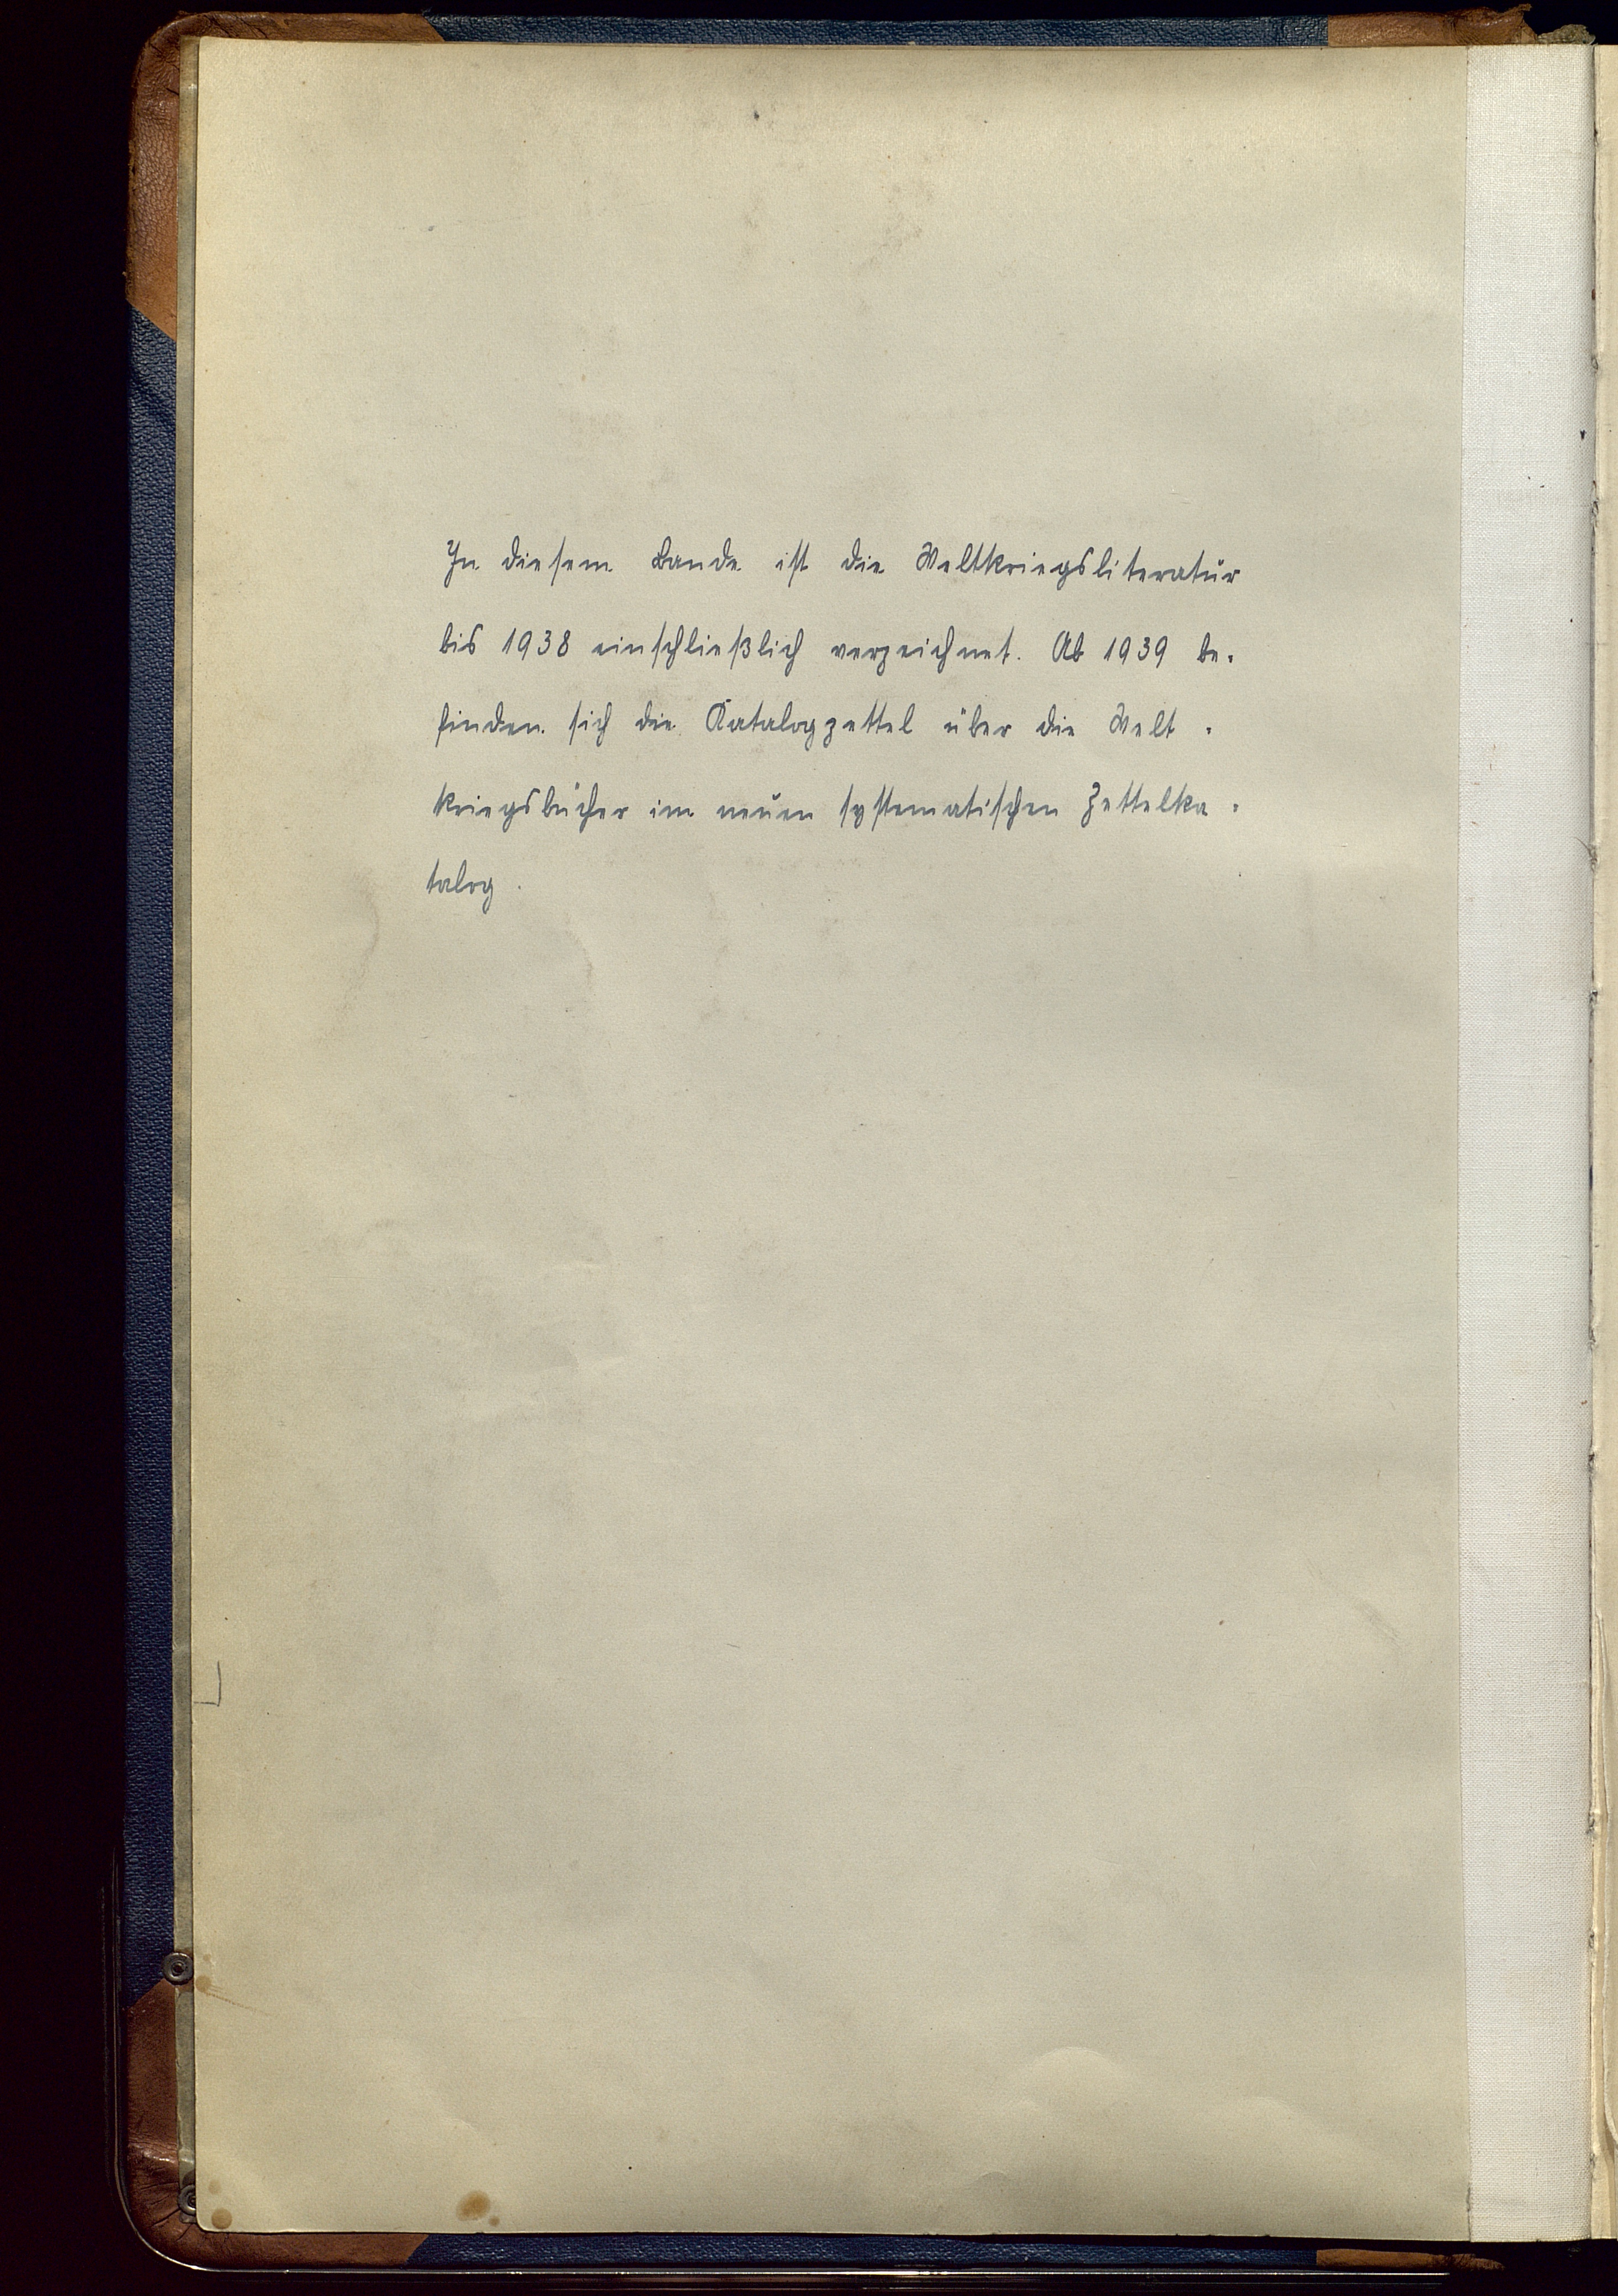 In diesem Bande ist die Weltkriegsliteratur
bis 1938 einschließlich verzeichnet. Ab 1939 be-
finden sich die Katalogzettel über die Welt-
kriegsbücher im neuen systematischen Zettelka-
talog.